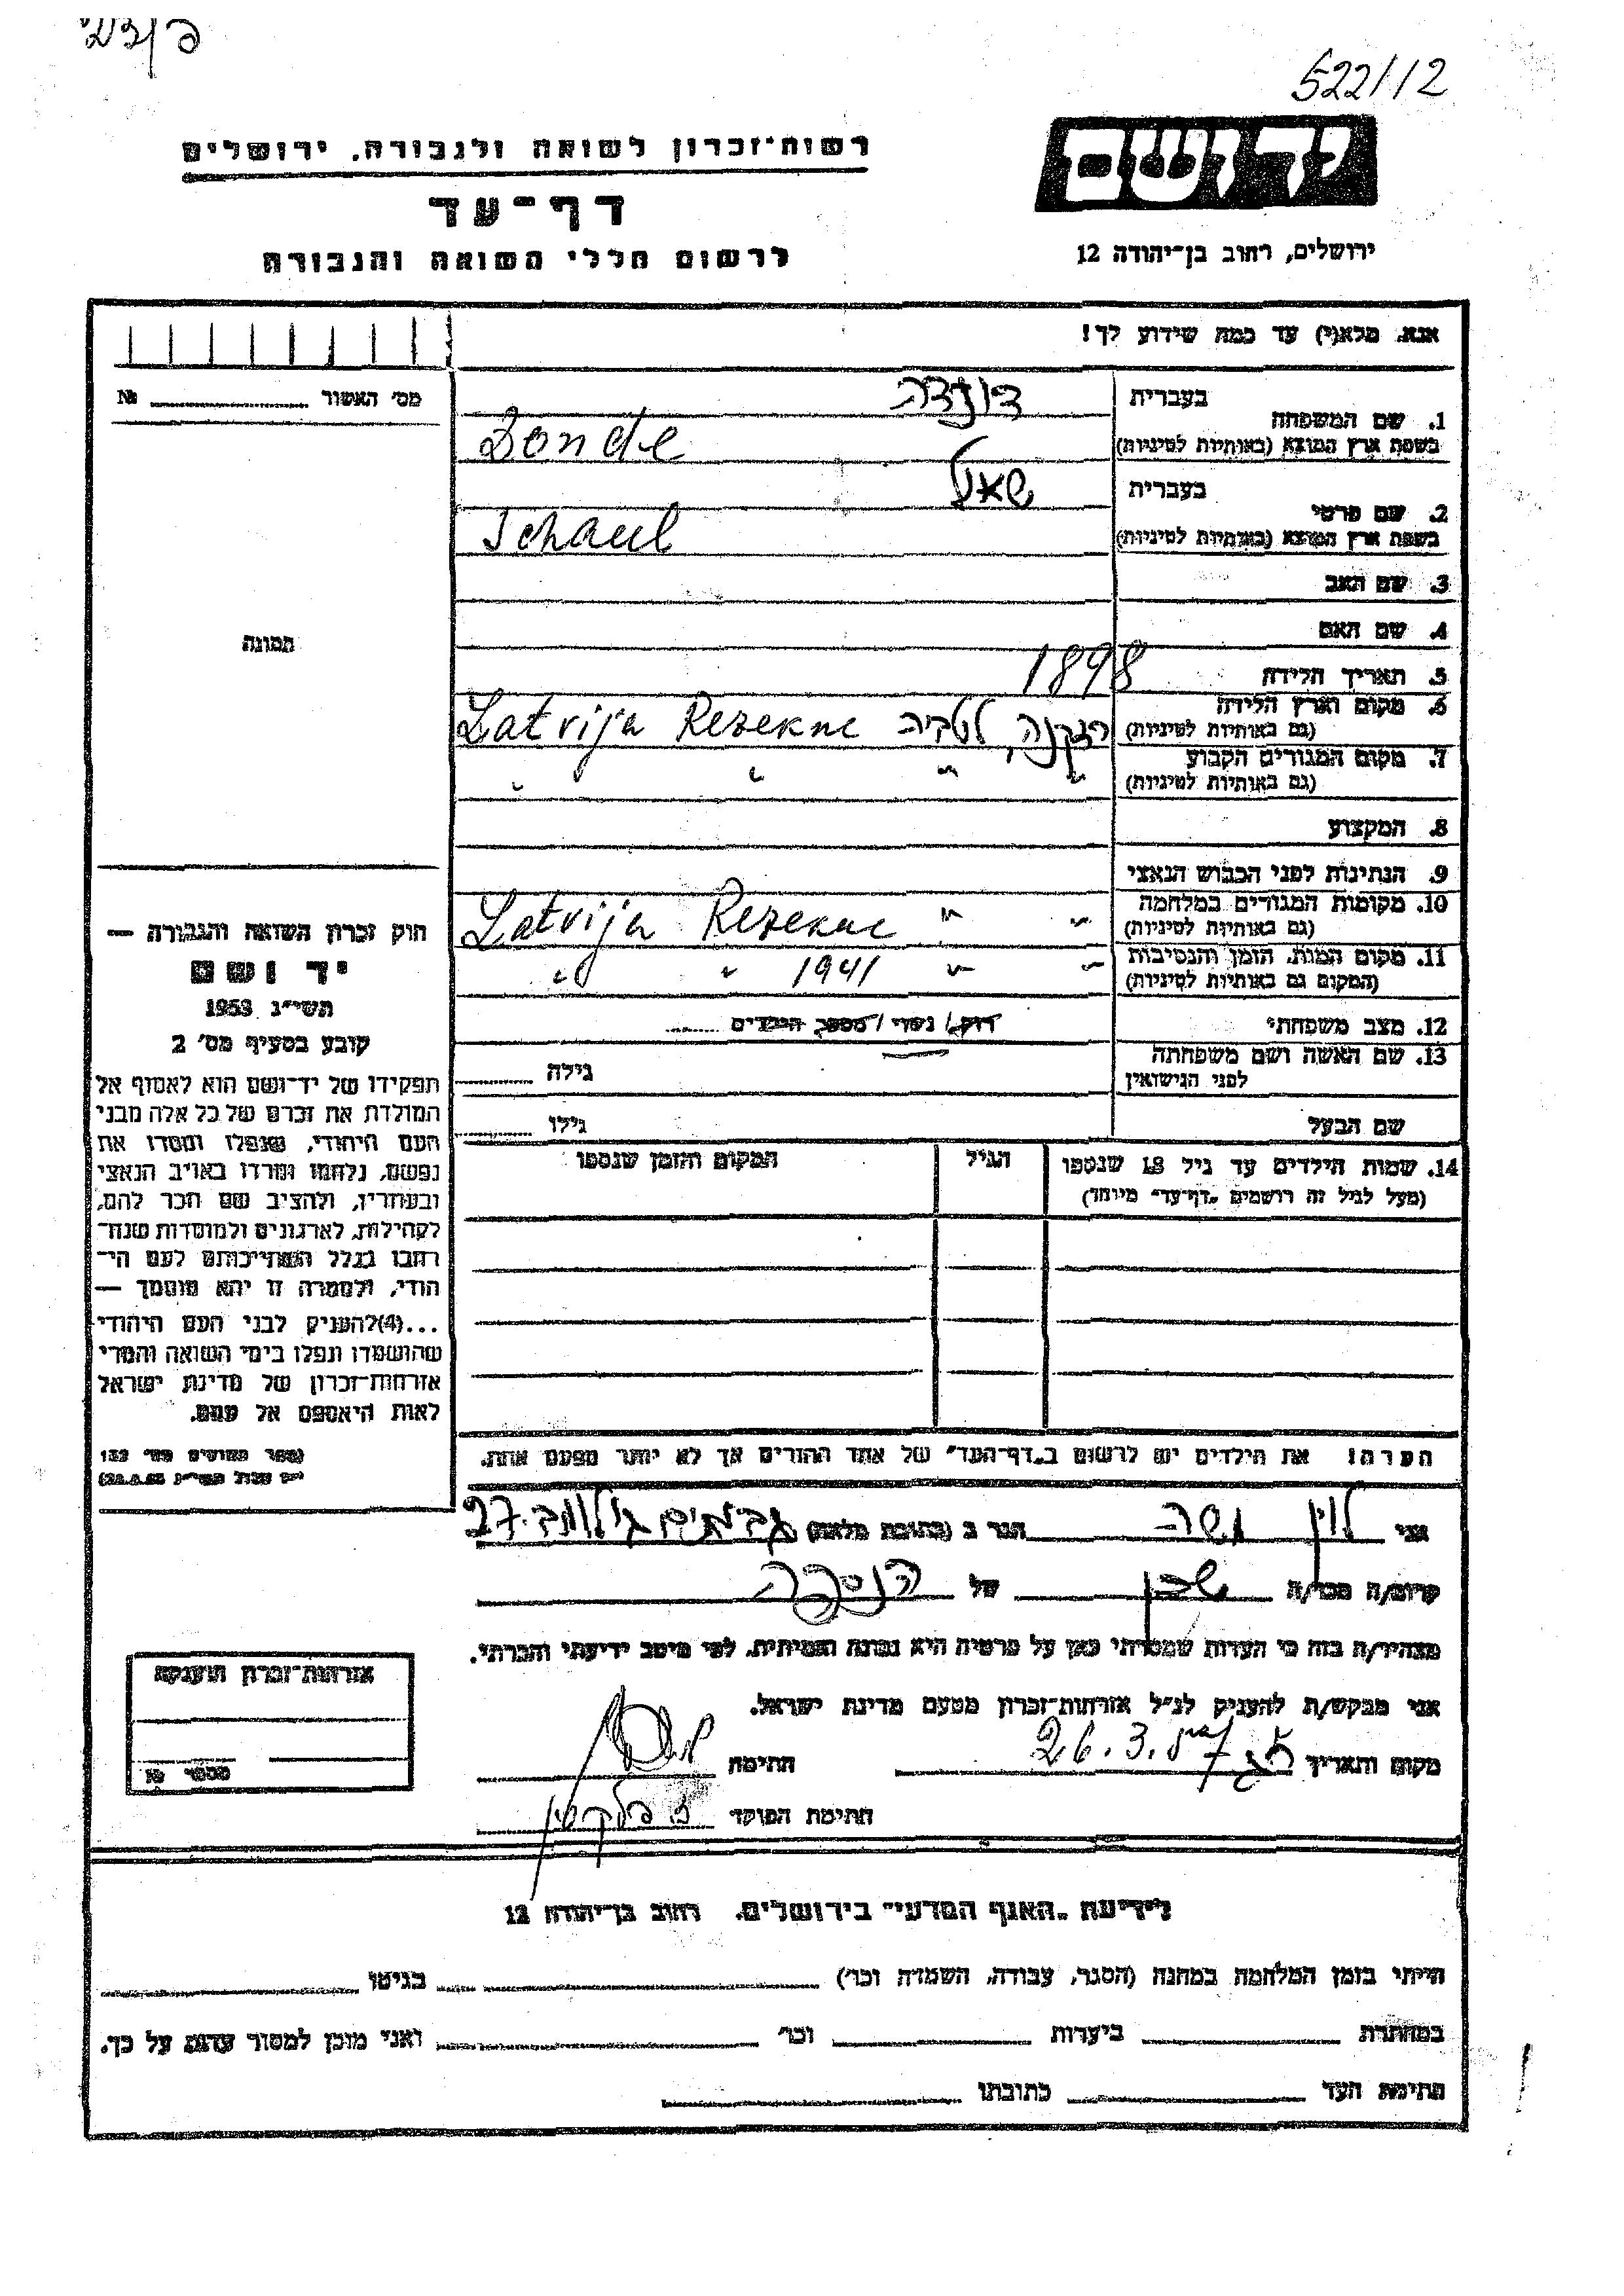 522/12
יד ושם
ירושלים, רחוב בן־יהודה 12
רשות־זכרון לשואה ולגבורה, ירושלים
דף־עד
לרשום חללי השואה והגבורה
אנא, מלא(י) עד כמה שידוע לך!
מס׳ האשור № 
1. שם המשפחה
בעברית דונדה
בשפת ארץ המוצא (באותיות לטיניות) Donde
2. שם פרטי
בעברית שאול
בשפת ארץ המוצא (באותיות לטיניות) Schaul
3. שם האב
4. שם האם
5. תאריך הלידה 1898
6. מקום וארץ הלידה
(גם באותיות לטיניות) רזקנה, לטביה Latvija Rezekne
7. מקום המגורים הקבוע
(גם באותיות לטיניות) " " " "
8. המקצוע
9. הנתינות לפני הכבוש הנאצי
10. מקומות המגורים במלחמה
(גם באותיות לטיניות) " " Latvija Rezekne
11. מקום המות, הזמן והנסיבות
(המקום גם באותיות לטיניות) " " 1941 " "
12. מצב משפחתי רווק / נשוי / מספר הילדים
13. שם האשה ושם משפחתה
לפני הנישואין גילה
שם הבעל גילו
14. שמות הילדים עד גיל 18 שנספו
(מעל לגיל זה רושמים „דף־עד״ מיוחד)
הגיל
המקום והזמן שנספו
הערה! את הילדים יש לרשום ב„דף־העד״ של אחד ההורים אך לא יותר מפעם אחת.
תמונה
חוק זכרון השואה והגבורה —
יד ושם
תשי״ג 1953
קובע בסעיף מס׳ 2
תפקידו של יד־ושם הוא לאסוף אל
המולדת את זכרם של כל אלה מבני
העם היהודי, שנפלו ומסרו את
נפשם, נלחמו ומרדו באויב הנאצי
ובעוזריו, ולהציב שם וזכר להם,
לקהילות, לארגונים ולמוסדות שנח־
רבו בגלל השתייכותם לעם הי־
הודי, ולמטרה זו יהא מוסמך —
...(4) להעניק לבני העם היהודי
שהושמדו ונפלו בימי השואה והמרי
אזרחות־זכרון של מדינת ישראל
לאות היאספם אל עמם.
(ספר החוקים מס׳ 132
אני לוין משה הגר ב (כתובת מלאה) גבעתיים גילווב 27
קרוב/ה מכר/ה שכן של הנספה
מצהיר/ה בזה כי העדות שמסרתי כאן על פרטיה היא נכונה ואמיתית, לפי מיטב ידיעתי והכרתי.
אני מבקש/ת להעניק לנ״ל אזרחות־זכרון מטעם מדינת ישראל.
מקום ותאריך 26.3. חתימה
חתימת הפוקד
אזרחות־זכרון הוענקה
מספר №
לידיעת „האגף המדעי״ בירושלים, רחוב בן־יהודה 12
הייתי בזמן המלחמה במחנה (הסגר, עבודה, השמדה וכו׳) בגיטו
במחתרת ביערות וכו׳ ואני מוכן למסור עדות על כך.
חתימת העד כתובתו